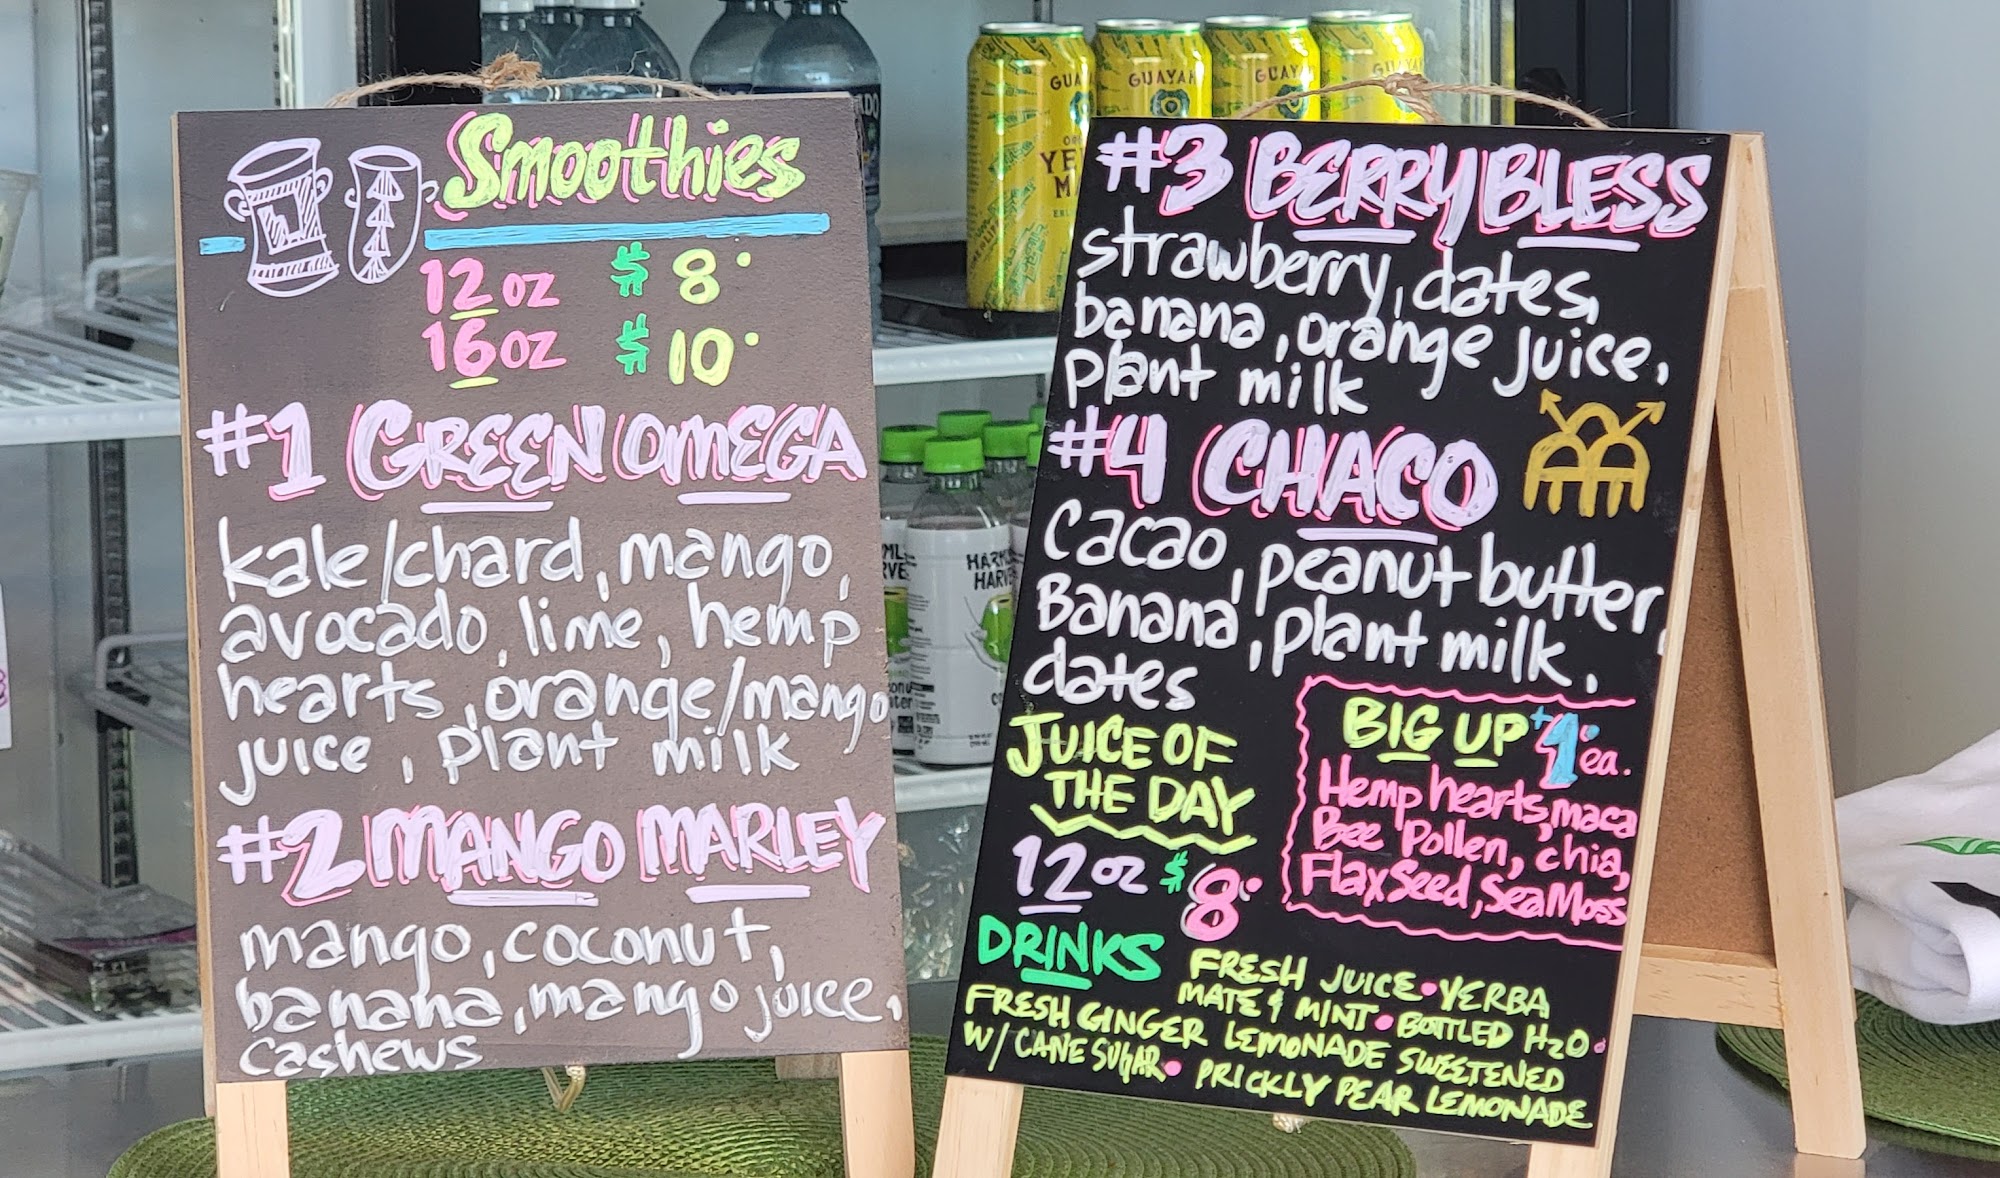 Smoothies
12oz $8.
16oz $10.
#1 GREEN OMEGA
kale/chard, mango,
avocado, lime, hemp
hearts, orange/mango
juice, plant milk
#2 MANGO MARLEY
mango, coconut,
banana, mango juice,
cashews
#3 BERRY BLESS
strawberry, dates,
banana, orange juice,
plant milk
#4 CHACO
Cacao, peanut butter,
Banana, plant milk,
dates
JUICE OF
THE DAY
12oz $8.
BIG UP +1. ea.
Hemp hearts, maca
Bee Pollen, chia,
Flax Seed, Sea Moss
DRINKS
FRESH JUICE • YERBA
MATE & MINT • BOTTLED H2O •
FRESH GINGER LEMONADE SWEETENED
W/ CANE SUGAR • PRICKLY PEAR LEMONADE
GUAYA
GUAYA
HARV